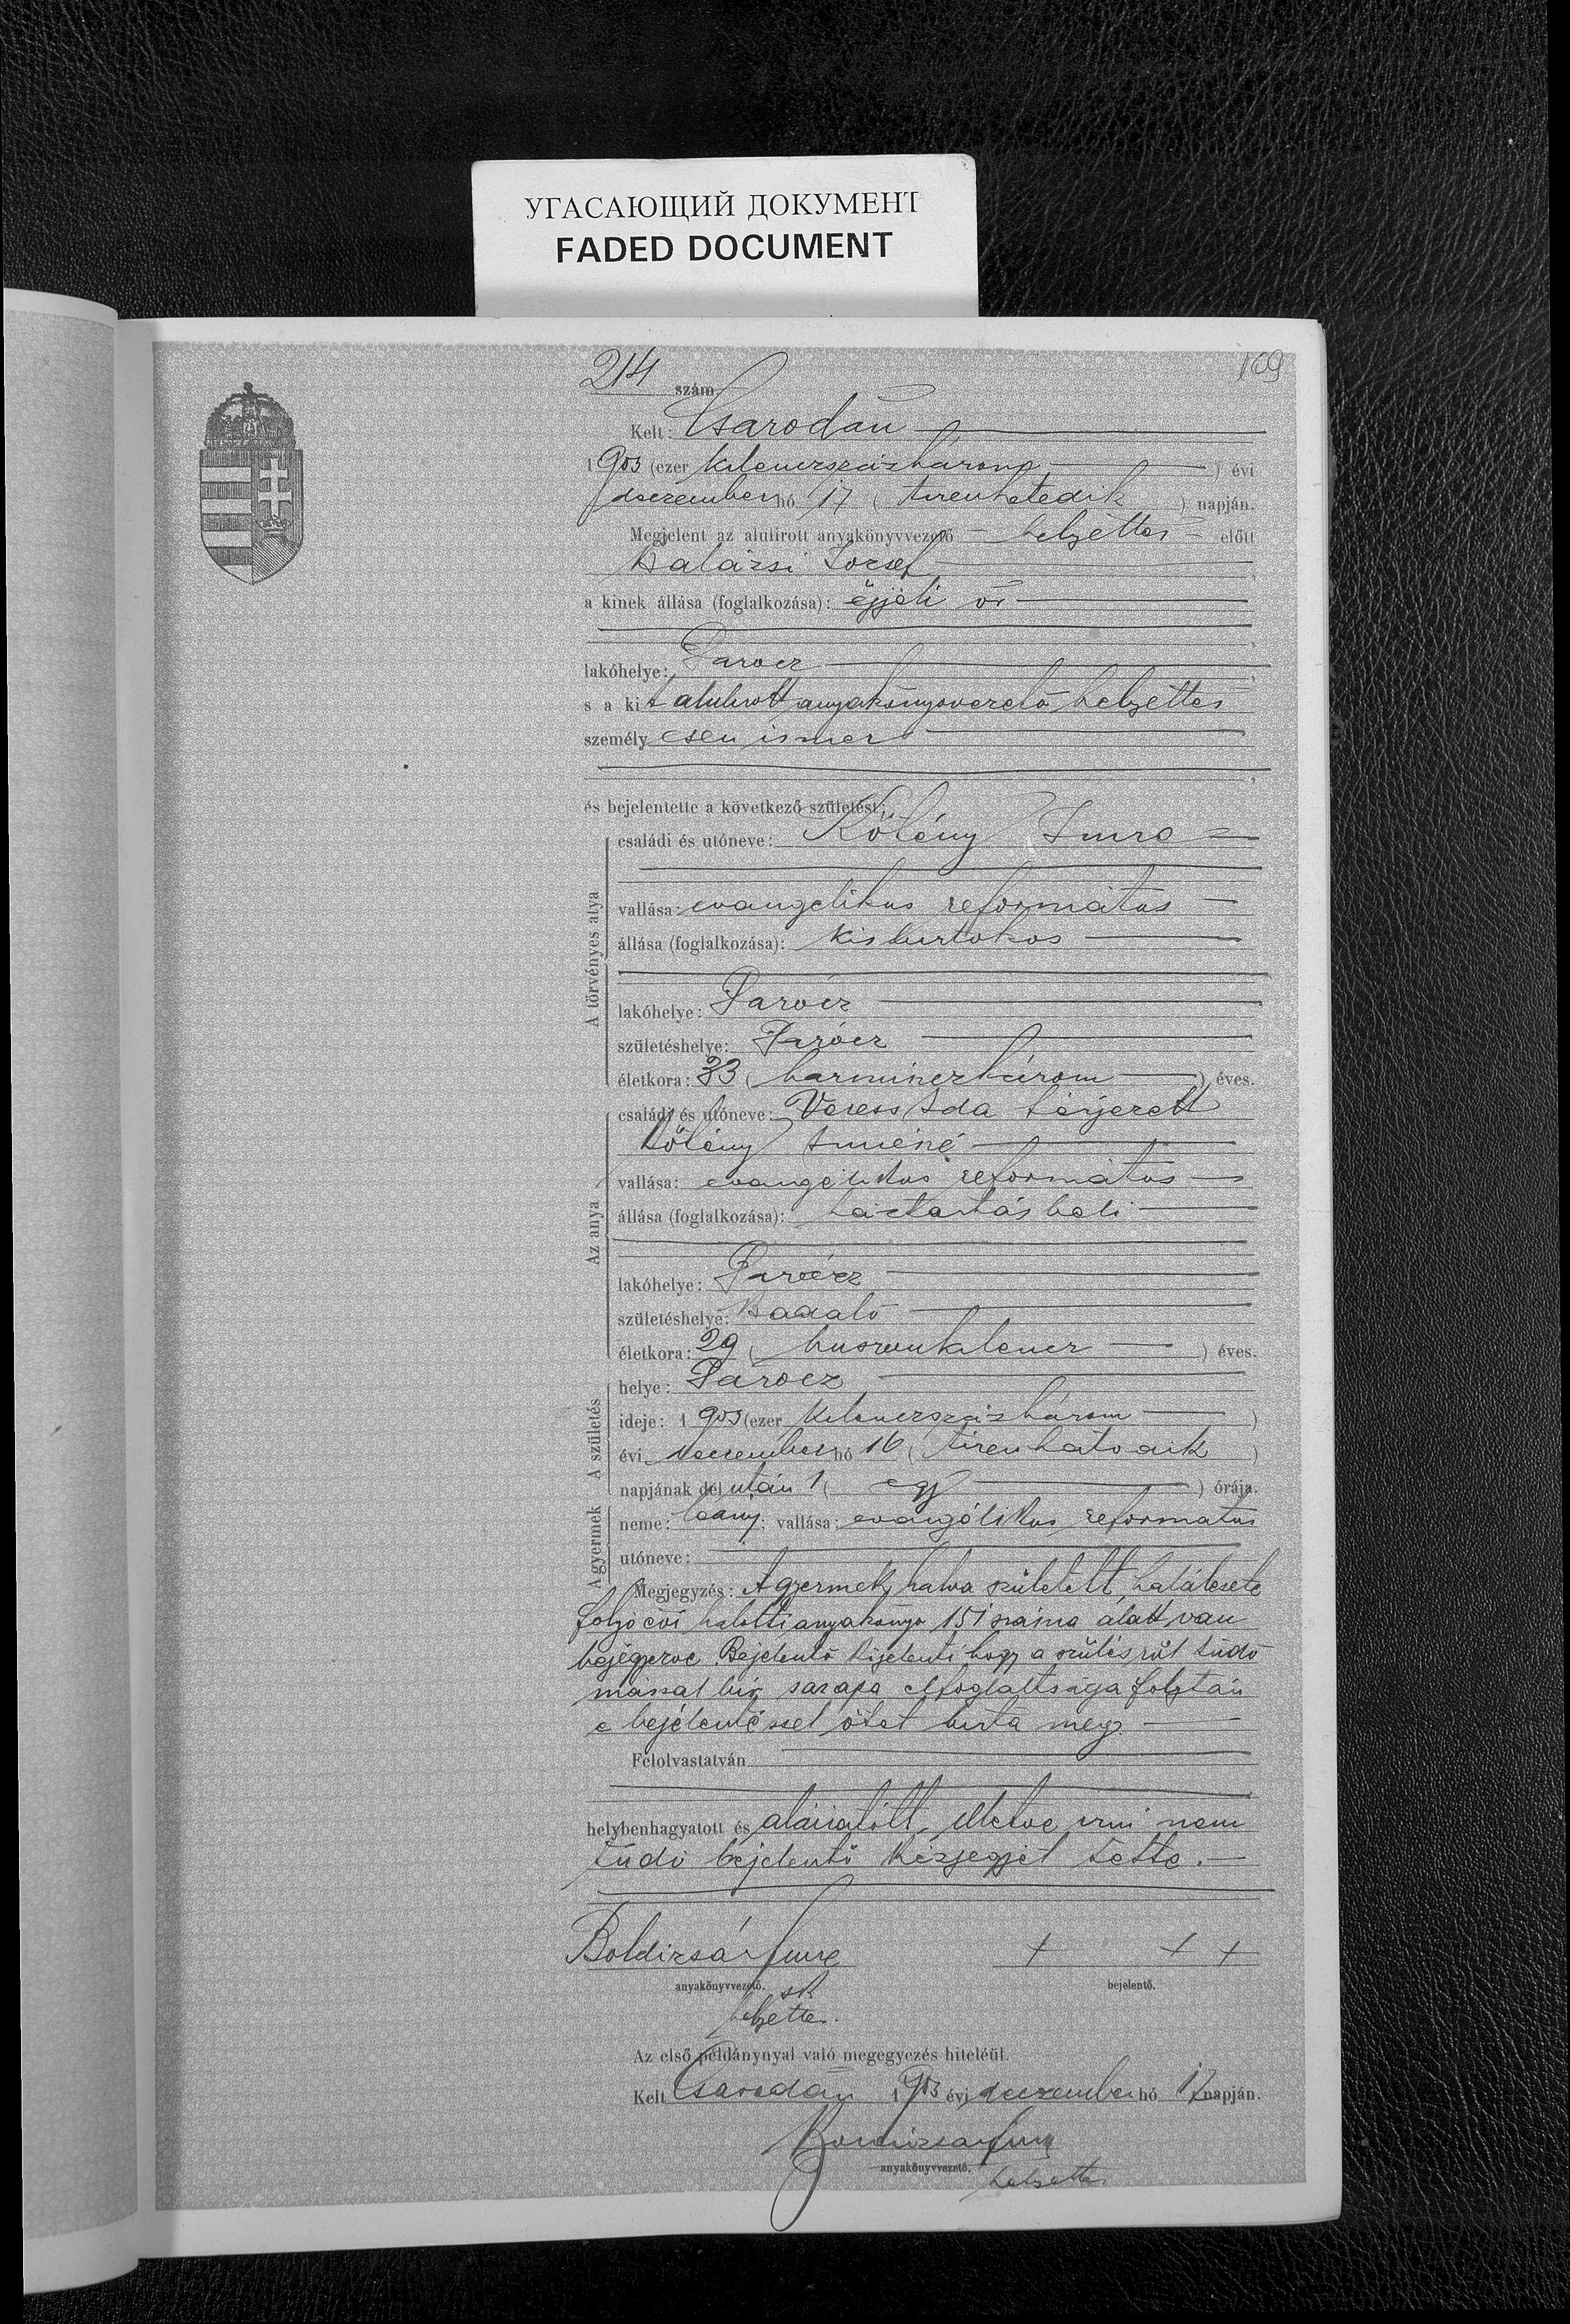 УГАСАЮЩИЙ ДОКУМЕНТ
FADED DOCUMENT
169
214 szám
Kelt: Csarodán
1903 (ezer kilenczszázhárom) évi
deczember hó 17 (tizenhetedik) napján.
Megjelent az alulirott anyakönyvvezető - helyettes - előtt
Balázsi József
a kinek állása (foglalkozása): éjjeli őr
lakóhelye: Tarpa
s a kit alulirott anyakönyvvezető helyettes
személyesen ismer
és bejelentette a következő születést:
A törvényes atya
családi és utóneve: Kölény Imre
vallása: evangelikus református
állása (foglalkozása): kisbirtokos
lakóhelye:
születéshelye:
életkora: 33 (harminczhárom) éves.
Az anya
családi és utóneve: Veress Ida férjezett
Kölény Imréné
vallása: evangélikus református
állása (foglalkozása): háztartásbeli
lakóhelye:
születéshelye: Badaló
életkora: 29 (huszonkilencz) éves.
A születés
helye:
ideje: 1903 (ezer kilenczszázhárom)
évi deczember hó 16 (tizenhatodik)
napjának délután 1 (egy) órája.
A gyermek
neme: leány; vallása: evangélikus református
utóneve:
Megjegyzés: A gyermek halva született, halálesete
folyó évi halotti anyakönyv 151 száma alatt van
bejegyezve. Bejelentő kijelenti, hogy a szülésről tudo
mással bír, s az apa elfoglaltsága folytán
e bejelentéssel őtet bízta meg.
Felolvastatván
helybenhagyatott és aláiratott, illetve irni nem
tudó bejelentő kézjegyét tette.
Boldizsár Imre + + +
anyakönyvvezető. bejelentő.
sk
helyettes.
Az első példánynyal való megegyezés hiteléül.
Kelt Csarodán 1903 évi deczember hó 17 napján.
Boldizsár Imre
anyakönyvvezető. helyettes